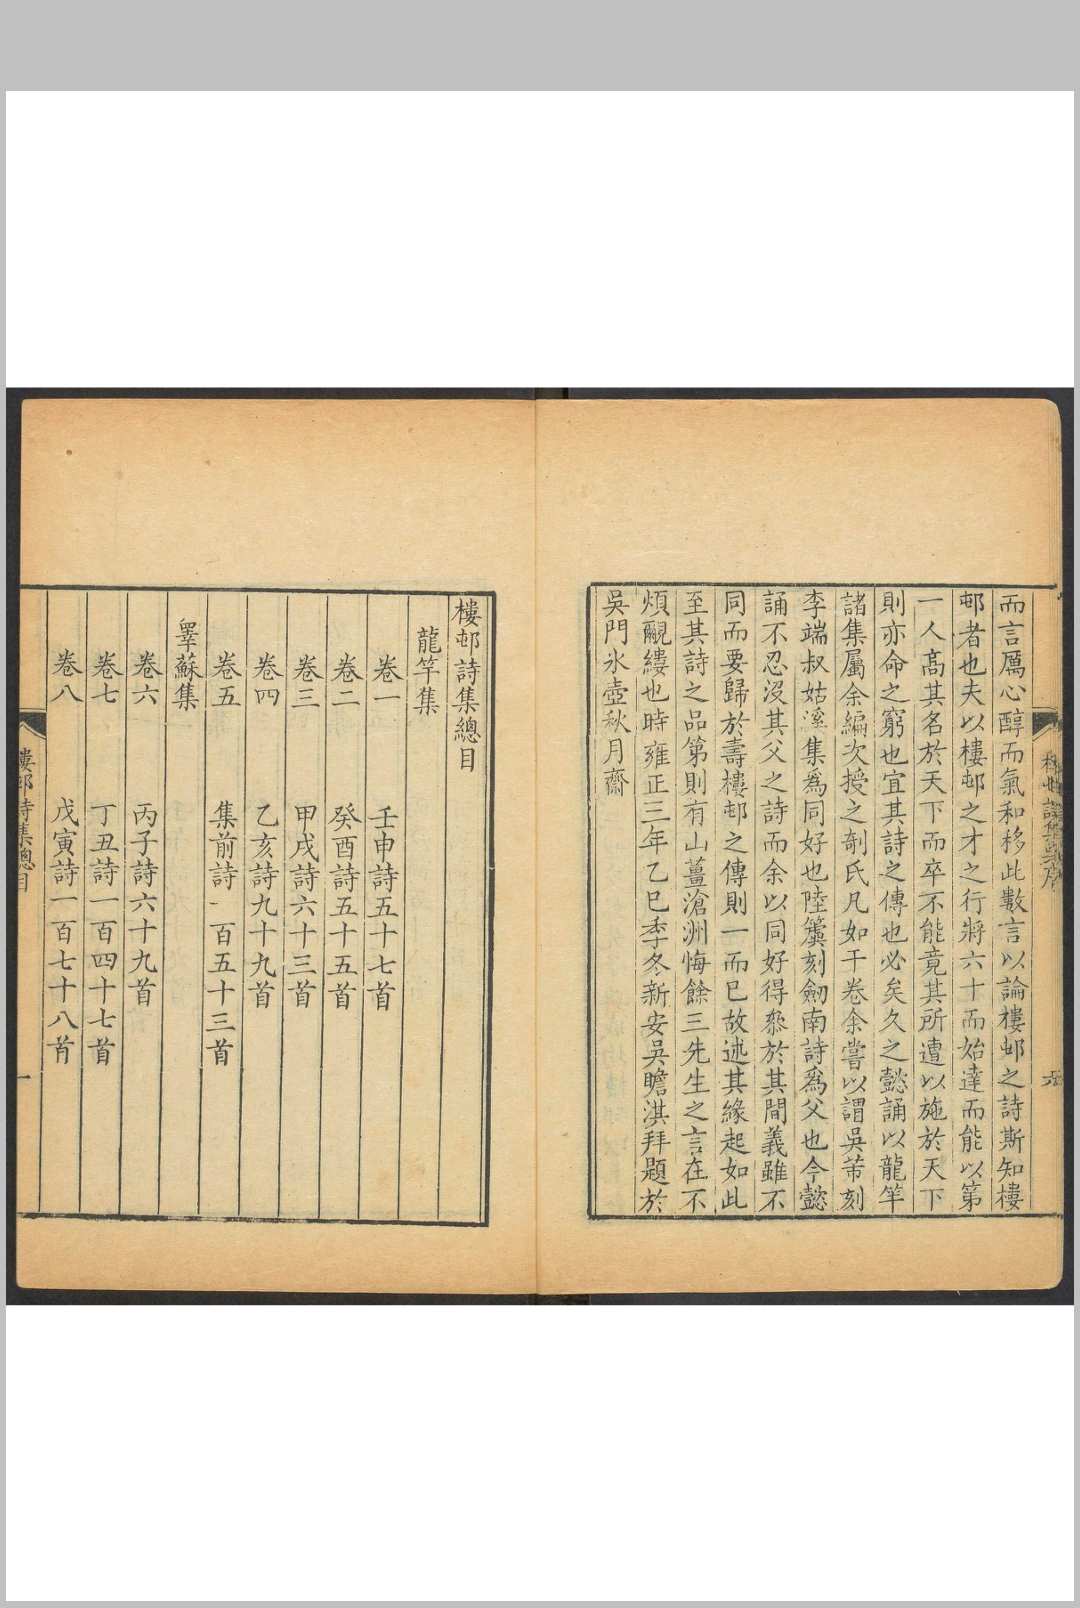 而言厲心醇而氣和移此數言以論樓邨之詩斯知樓
邨者也夫以樓邨之才之行將六十而始達而能以第
一人高其名於天下而卒不能竟其所遭以施於天下
則亦命之窮也宜其詩之傳也必矣久之懿誦以龍竿
諸集屬余編次授之剞氏凡如干卷余嘗以謂吳芾刻
李端叔姑溪集為同好也陸䉵刻劒南詩為父也今懿
誦不忍沒其父之詩而余以同好得叅於其間義雖不
同而要歸於壽樓邨之傳則一而已故述其緣起如此
至其詩之品第則有山薑滄洲悔餘三先生之言在不
煩覼縷也時雍正三年乙巳季冬新安吳瞻淇拜題於
吳門氷壺秋月齋
樓邨詩集總目
龍竿集
卷一 壬申詩五十七首
卷二 癸酉詩五十五首
卷三 甲戌詩六十三首
卷四 乙亥詩九十九首
卷五 集前詩一百五十三首
睪蘇集
卷六 丙子詩六十九首
卷七 丁丑詩一百四十七首
卷八 戊寅詩一百七十八首
樓邨詩集總目
一